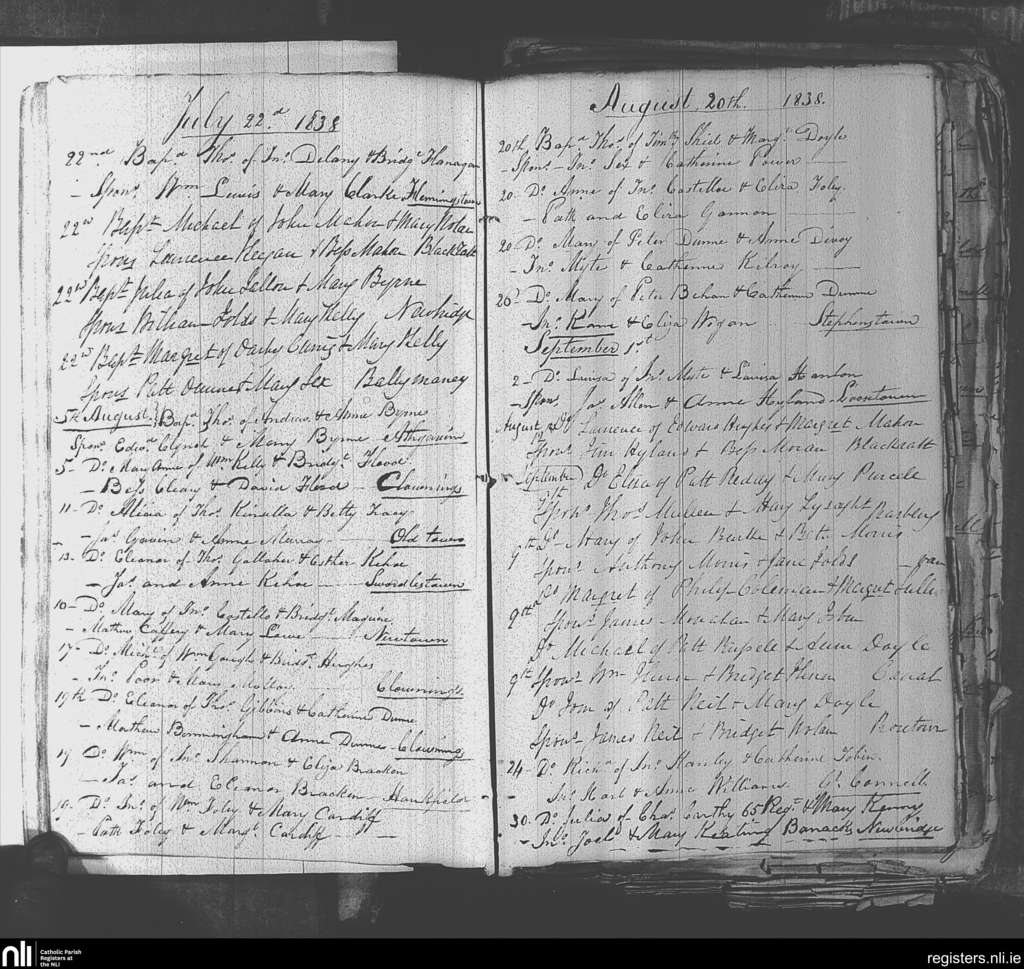 July 22.d 1838
22nd Bapd Thos. of Jno. Delany & Bridgt Flanagan
- Spons. Wm Lewis & Mary Clarke Flemingstown
22d Bapt Michael of John Mahon & Mary Nolan
Spons Laurence Keegan & Bess Mahon Blackratt
22d Bapt Julia of John Lallou & Mary Byrne
Spons William Folds & Mary Kelly Newbridge
22d Bapt Margret of Darby & Mary Kelly
Spons Patt & Mary Lex Ballymaney
5th August. Bapt. Thos. of Andrew & Anne Byrne
Spons. Edwd & Mary Byrne Athgarvin
5- Do. Mary Anne of Wm Kelly & Bridgt. Flood
- Bess Cleary & David Flood - Clownings
11- Do. Alicia of Thos. Kinsella & Betty Tracy
- Jas. Gavin & Anne Murray - Old town
13. Do. Eleanor of Thos. Gallaher & Esther Kehoe
- Jas. and Anne Kehoe - Swordlestown
10- Do. Mary of Jno. Costello & Bridgt. Maguire
- Mathew Caffery & Mary Lawe - Newtown
17- Do. Michl. of Wm Gough & Bridgt. Hughes
- Jno. Poor & Mary Clownings
19th Do. Eleanor of Thos. Gibbons & Catherine Dunne
- Mathew Birmingham & Anne Dunne - Clownings
19 Do. Wm of Jno. Shannon & Eliza Bracken
- Jas. and Eleanor Bracken -
19. Do. Jno. of Wm Foley & Mary Cardiff
- Patk Foley & Margt. Cardiff - -
August, 20th. 1838.
20th, Bapd Thos. of Timy Shiel & Margt. Doyle
- Spons- Jno. Lex & Catherine Power -
20. Do. Anne of Jno. Costelloe & Eliza Foley.
- Patk and Eliza Gannon -
20- Do. Mary of Peter Dunne & Anne Devoy
- Jno. Myte & Catherine Kilroy -
20d Do. Mary of Peter Behan & Catherine Dunne
- Jno. Kane & Eliza Wogan Stephenstown
September 1st
2- Do. Luisa of Jno. Myte & Luisa Hanlon
- Spons Jas. Allen & Anne Hyland - Loosetown
August Do Laurence of Edward Hughes & Margaret Mahon
Spons. Jim Hyland & Bess Moran Blackratt
September Do Eliza of Patt Reddy & Mary Purcele
1st Spons. Thos. Mullen & Mary Lysaght
9th Do. Mary of John & Beth Morris
Spons. Anthony Morris & Jane Folds
9th Do Margret of Philip Coleman & Margret
Spons. James Monahan & Mary
Do Michael of Patt Russele & Doyle
9th Spons- Wm & Bridget Canal
Do Jon of Patt Neil & Mary Doyle
Spons- James Neil & Bridget Nolan Rosetown
24- Do. Richd. of Jno. Hanley & Catherine Tobin.
- Jno. Hart & Anne Williams. Gt. Connell
30. Do. Julia of Chas. Carthy 65 Regt. & Mary Kenny
- Jno. Joel & Mary Keating Barracks Newbridge
nli Catholic Parish
Registers at
the NLI
registers.nli.ie